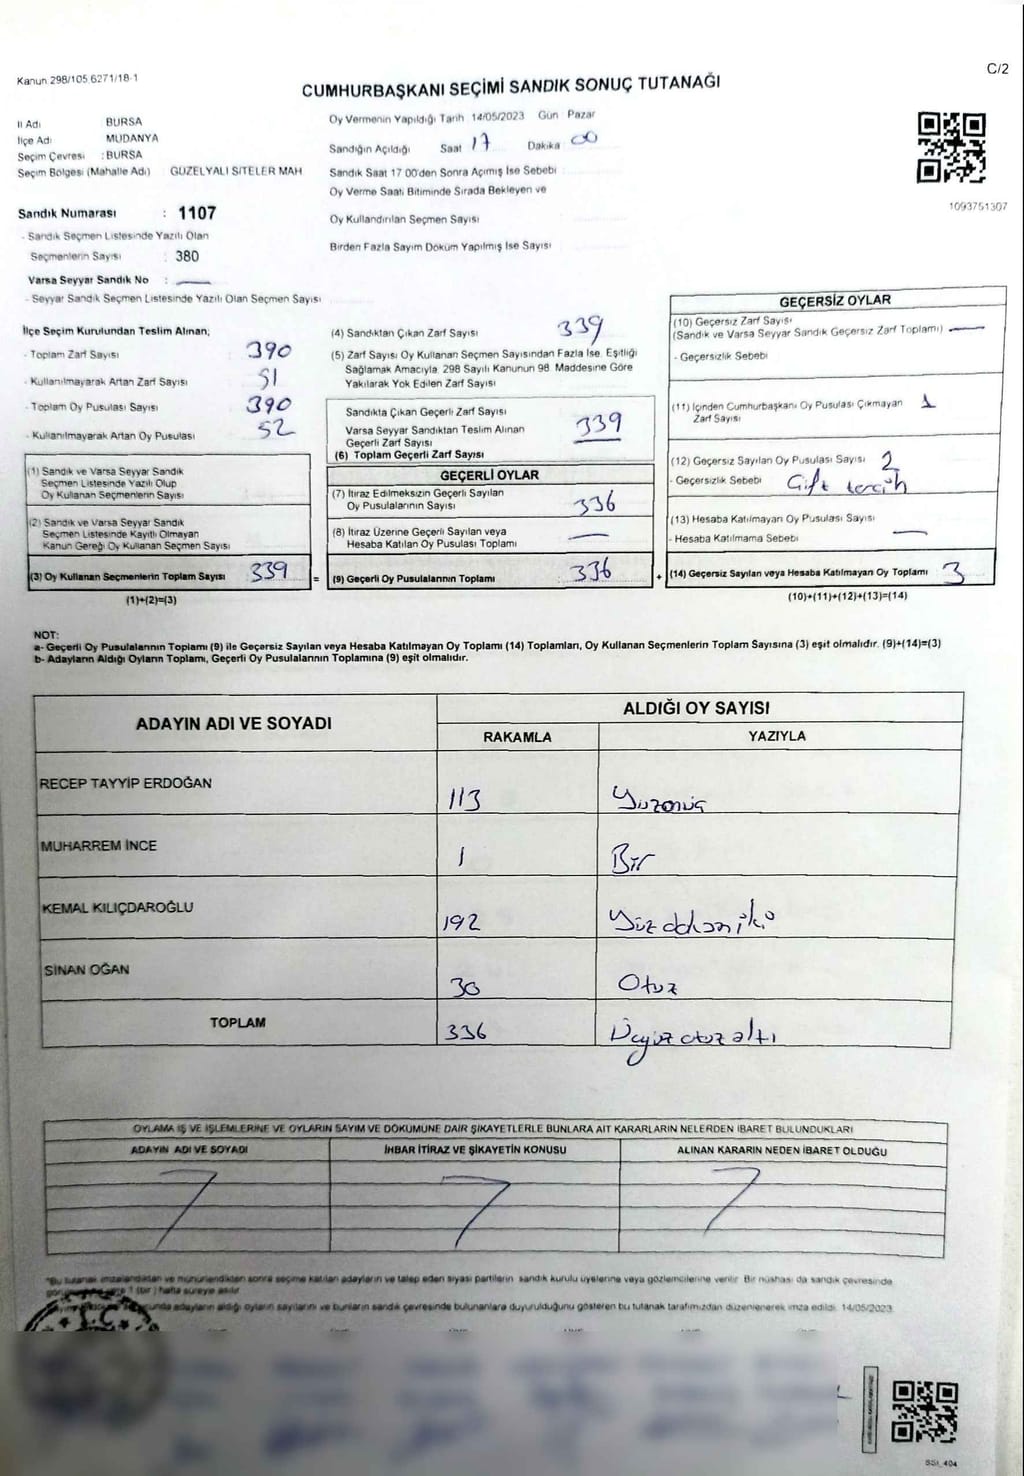 Kanun 298/105 6271/18-1
C/2
CUMHURBAŞKANI SEÇİMİ SANDIK SONUÇ TUTANAĞI
İl Adı BURSA
İlçe Adı MUDANYA
Seçim Çevresi : BURSA
Seçim Bölgesi (Mahalle Adı) GÜZELYALI SİTELER MAH
Sandık Numarası : 1107
- Sandık Seçmen Listesinde Yazılı Olan
Seçmenlerin Sayısı : 380
Varsa Seyyar Sandık No : —
- Seyyar Sandık Seçmen Listesinde Yazılı Olan Seçmen Sayısı
Oy Vermenin Yapıldığı Tarih 14/05/2023 Gün Pazar
Sandığın Açıldığı Saat 17 Dakika 00
Sandık Saat 17 00'den Sonra Açımış İse Sebebi
Oy Verme Saati Bitiminde Sırada Bekleyen ve
Oy Kullandırılan Seçmen Sayısı
Birden Fazla Sayım Döküm Yapılmış İse Sayısı
1093751307
İlçe Seçim Kurulundan Teslim Alınan;
- Toplam Zarf Sayısı 390
- Kullanılmayarak Artan Zarf Sayısı 51
- Toplam Oy Pusulası Sayısı 390
- Kullanılmayarak Artan Oy Pusulası 52
(1) Sandık ve Varsa Seyyar Sandık
Seçmen Listesinde Yazılı Olup
Oy Kullanan Seçmenlerin Sayısı
(2) Sandık ve Varsa Seyyar Sandık
Seçmen Listesinde Kayıtlı Olmayan
Kanun Gereği Oy Kullanan Seçmen Sayısı
(3) Oy Kullanan Seçmenlerin Toplam Sayısı 339 =
(1)+(2)=(3)
(4) Sandıktan Çıkan Zarf Sayısı 339
(5) Zarf Sayısı Oy Kullanan Seçmen Sayısından Fazla İse, Eşitliği
Sağlamak Amacıyla, 298 Sayılı Kanunun 98 Maddesine Göre
Yakılarak Yok Edilen Zarf Sayısı
Sandıkta Çıkan Geçerli Zarf Sayısı
Varsa Seyyar Sandıktan Teslim Alınan 339
Geçerli Zarf Sayısı
(6) Toplam Geçerli Zarf Sayısı
GEÇERLİ OYLAR
(7) İtiraz Edilmeksizin Geçerli Sayılan
Oy Pusulalarının Sayısı 336
(8) İtiraz Üzerine Geçerli Sayılan veya
Hesaba Katılan Oy Pusulası Toplamı —
(9) Geçerli Oy Pusulalarının Toplamı 336 +
GEÇERSİZ OYLAR
(10) Geçersiz Zarf Sayısı
(Sandık ve Varsa Seyyar Sandık Geçersiz Zarf Toplamı) —
- Geçersizlik Sebebi
(11) İçinden Cumhurbaşkanı Oy Pusulası Çıkmayan 1
Zarf Sayısı
(12) Geçersiz Sayılan Oy Pusulası Sayısı 2
- Geçersizlik Sebebi Çift tercih
(13) Hesaba Katılmayan Oy Pusulası Sayısı
- Hesaba Katılmama Sebebi —
(14) Geçersiz Sayılan veya Hesaba Katılmayan Oy Toplamı 3
(10)+(11)+(12)+(13)=(14)
NOT:
a- Geçerli Oy Pusulalarının Toplamı (9) ile Geçersiz Sayılan veya Hesaba Katılmayan Oy Toplamı (14) Toplamları, Oy Kullanan Seçmenlerin Toplam Sayısına (3) eşit olmalıdır. (9)+(14)=(3)
b- Adayların Aldığı Oyların Toplamı, Geçerli Oy Pusulalarının Toplamına (9) eşit olmalıdır.
ADAYIN ADI VE SOYADI
ALDIĞI OY SAYISI
RAKAMLA YAZIYLA
RECEP TAYYİP ERDOĞAN 113 Yüzonüç
MUHARREM İNCE 1 Bir
KEMAL KILIÇDAROĞLU 192 Yüzdoksaniki
SİNAN OĞAN 30 Otuz
TOPLAM 336 Üçyüz otuz altı
OYLAMA İŞ VE İŞLEMLERİNE VE OYLARIN SAYIM VE DÖKÜMÜNE DAİR ŞİKAYETLERLE BUNLARA AİT KARARLARIN NELERDEN İBARET BULUNDUKLARI
ADAYIN ADI VE SOYADI İHBAR İTİRAZ VE ŞİKAYETİN KONUSU ALINAN KARARIN NEDEN İBARET OLDUĞU
*Bu tutanak imzalandıktan ve mühürlendikten sonra seçime katılan adayların ve talep eden siyasi partilerin sandık kurulu üyelerine veya gözlemcilerine verilir. Bir nüshası da sandık çevresinde
1 (bir) hafta süreyle asılır
adayların aldığı oyların sayılarını ve bunların sandık çevresinde bulunanlara duyurulduğunu gösteren bu tutanak tarafımızdan düzenlenerek imza edildi. 14/05/2023
T.C.
SSI_404